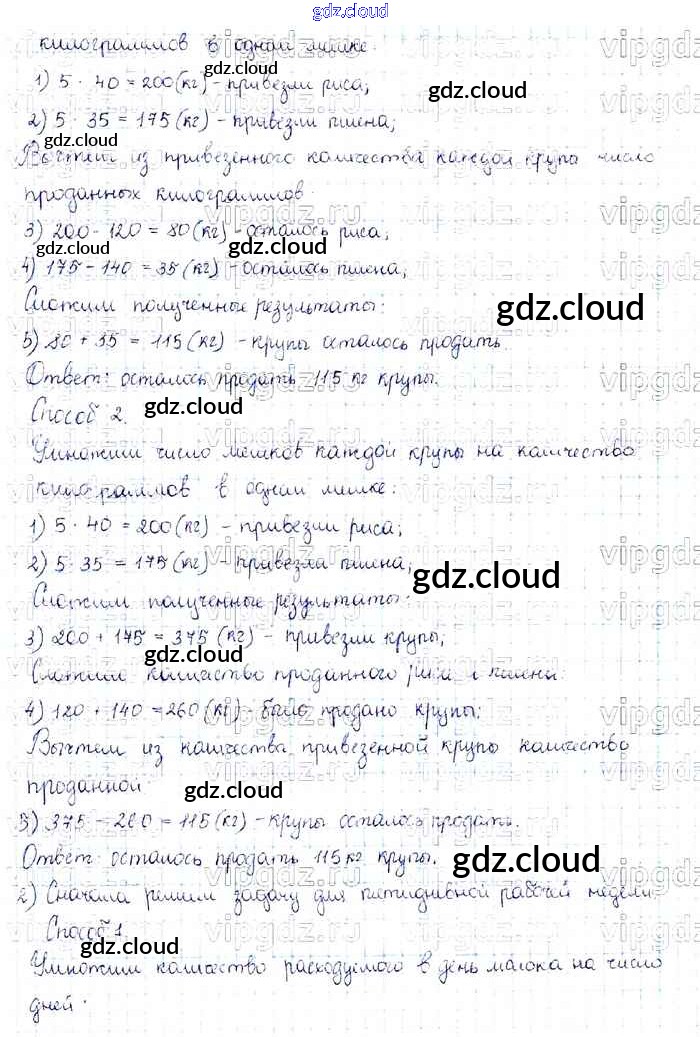 gdz.cloud
килограммов в одном мешке.
1) 5 · 40 = 200 (кг) - привезли риса;
2) 5 · 35 = 175 (кг) - привезли пшена;
Вычтем из привезенного количества каждой крупы число
проданных килограммов
3) 200 - 120 = 80 (кг) - осталось риса;
4) 175 - 140 = 35 (кг) - осталось пшена;
Сложим полученные результаты:
5) 80 + 35 = 115 (кг) - крупы осталось продать.
Ответ: осталось продать 115 кг крупы.
Способ 2.
Умножим число мешков каждой крупы на количество
килограммов в одном мешке:
1) 5 · 40 = 200 (кг) - привезли риса;
2) 5 · 35 = 175 (кг) - привезли пшена;
Сложим полученные результаты:
3) 200 + 175 = 375 (кг) - привезли крупы;
Сложим количество проданного риса и пшена:
4) 120 + 140 = 260 (кг) - было продано крупы;
Вычтем из количества привезенной крупы количество
проданной
5) 375 - 260 = 115 (кг) - крупы осталось продать.
Ответ: осталось продать 115 кг крупы.
2) Сначала решим задачу для пятидневной рабочей недели.
Способ 1.
Умножим количество расходуемого в день молока на число
дней.